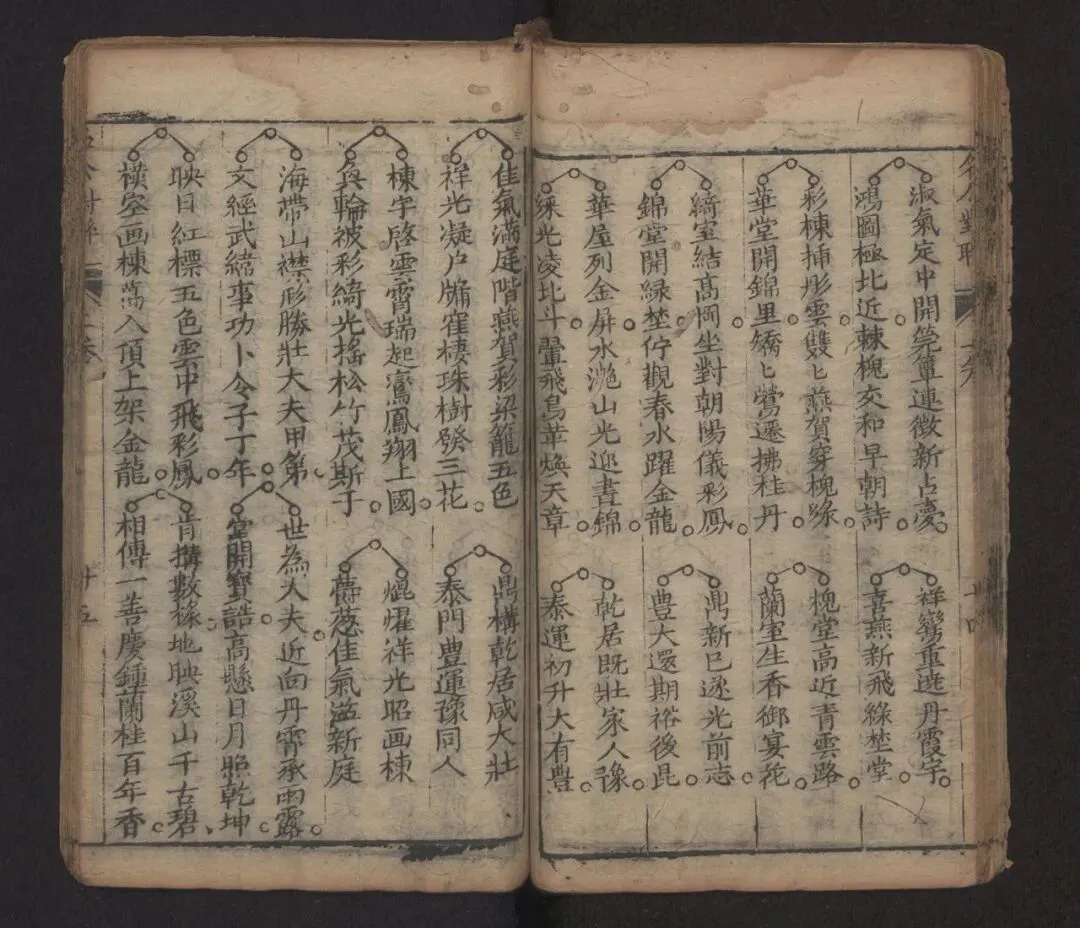 淑氣定中開筦簟連徴新占夢
鴻圖極北近棘槐交和早朝詩
祥鸞重遶丹霞宇
喜燕新飛綠埜堂
彩棟挿彤雲雙〻燕賀穿槐綠
華堂開錦里矯〻鶯遷拂桂丹
槐堂高近青雲路
蘭室生香御宴花
綺室結髙岡坐對朝陽儀彩鳳
錦堂開緑埜佇觀春水躍金龍
鼎新已遂光前志
豊大還期裕後昆
華屋列金屏水滟山光迎晝錦
綵光凌北斗翬飛鳥革煥天章
乾居既壯家人豫
泰運初升大有豊
佳氣滿庭階燕賀彩梁籠五色
祥光凝户牖寉棲珠樹發三花
鼎構乾居咸大壯
泰門豊運豫同人
棟宇啓雲霄瑞起鸞鳳翔上國
奐輪被彩綺光搖松竹茂斯干
焜燿祥光昭画棟
蔚葱佳氣滋新庭
海帶山襟形勝壯大夫甲第
文經武緯事功卜令子丁年
世為大夫近向丹霄承雨露
堂開寶誥高懸日月照乾坤
映日紅標五色雲中飛彩鳳
横空画棟萬入頂上架金龍
肯搆數椽地映溪山千古碧
相傳一善慶鍾蘭桂百年香
廿五